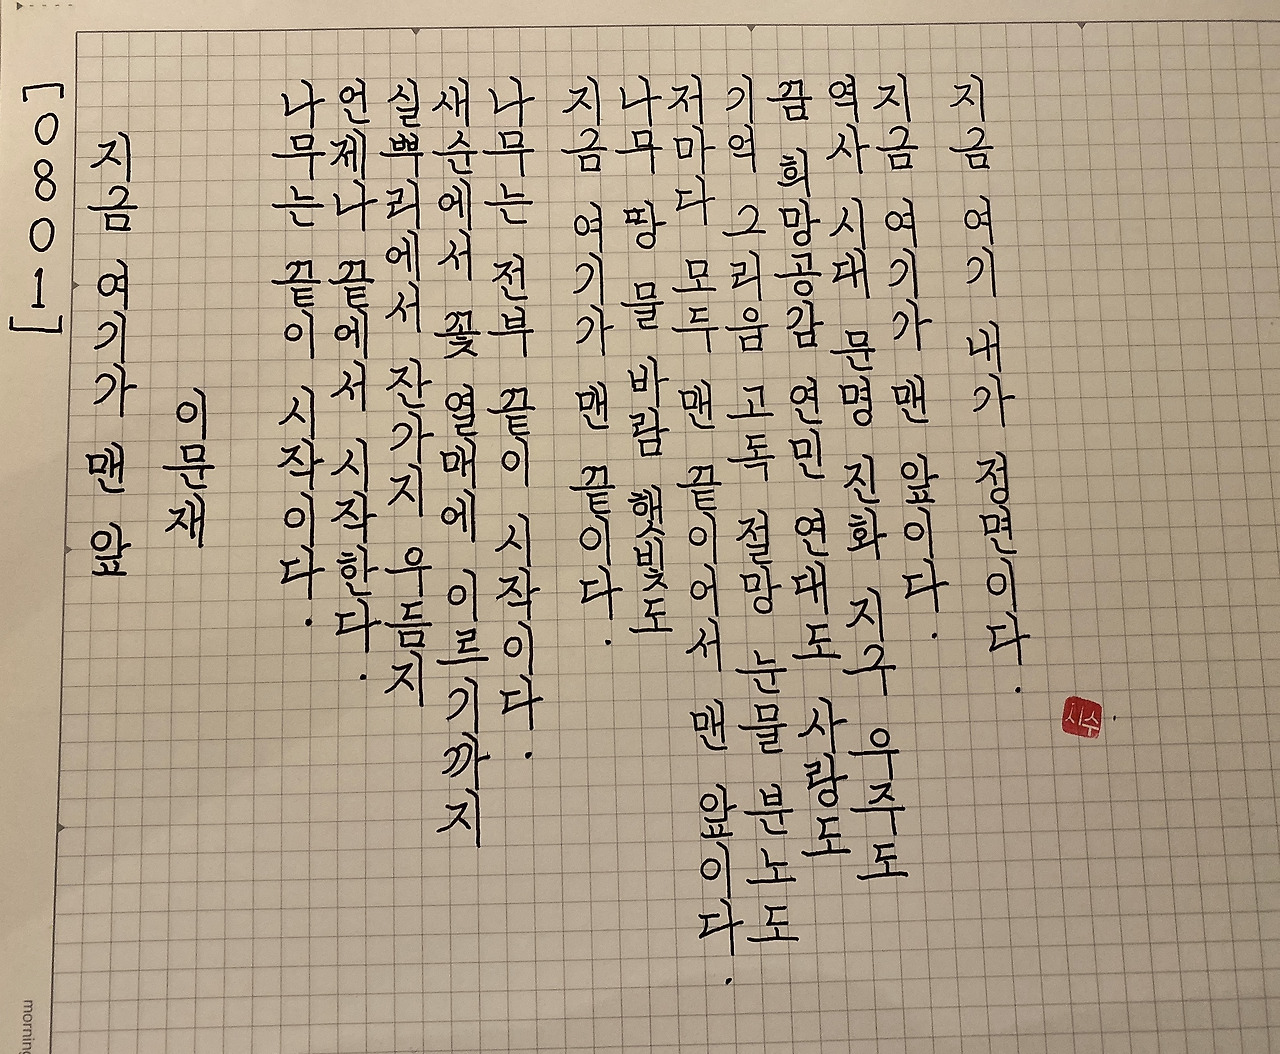 [0801]
지금 여기가 맨 앞
이문재
나무는 끝이 시작이다.
언제나 끝에서 시작한다.
실뿌리에서 잔가지 우듬지
새순에서 꽃 열매에 이르기까지
나무는 전부 끝이 시작이다.
지금 여기가 맨 끝이다.
나무 땅 물 바람 햇빛도
저마다 모두 맨 끝이어서 맨 앞이다.
기억 그리움 고독 절망 눈물 분노도
꿈 희망공감 연민 연대도 사랑도
역사 시대 문명 진화 지구 우주도
지금 여기가 맨 앞이다.
지금 여기 내가 정면이다.
시수
morning